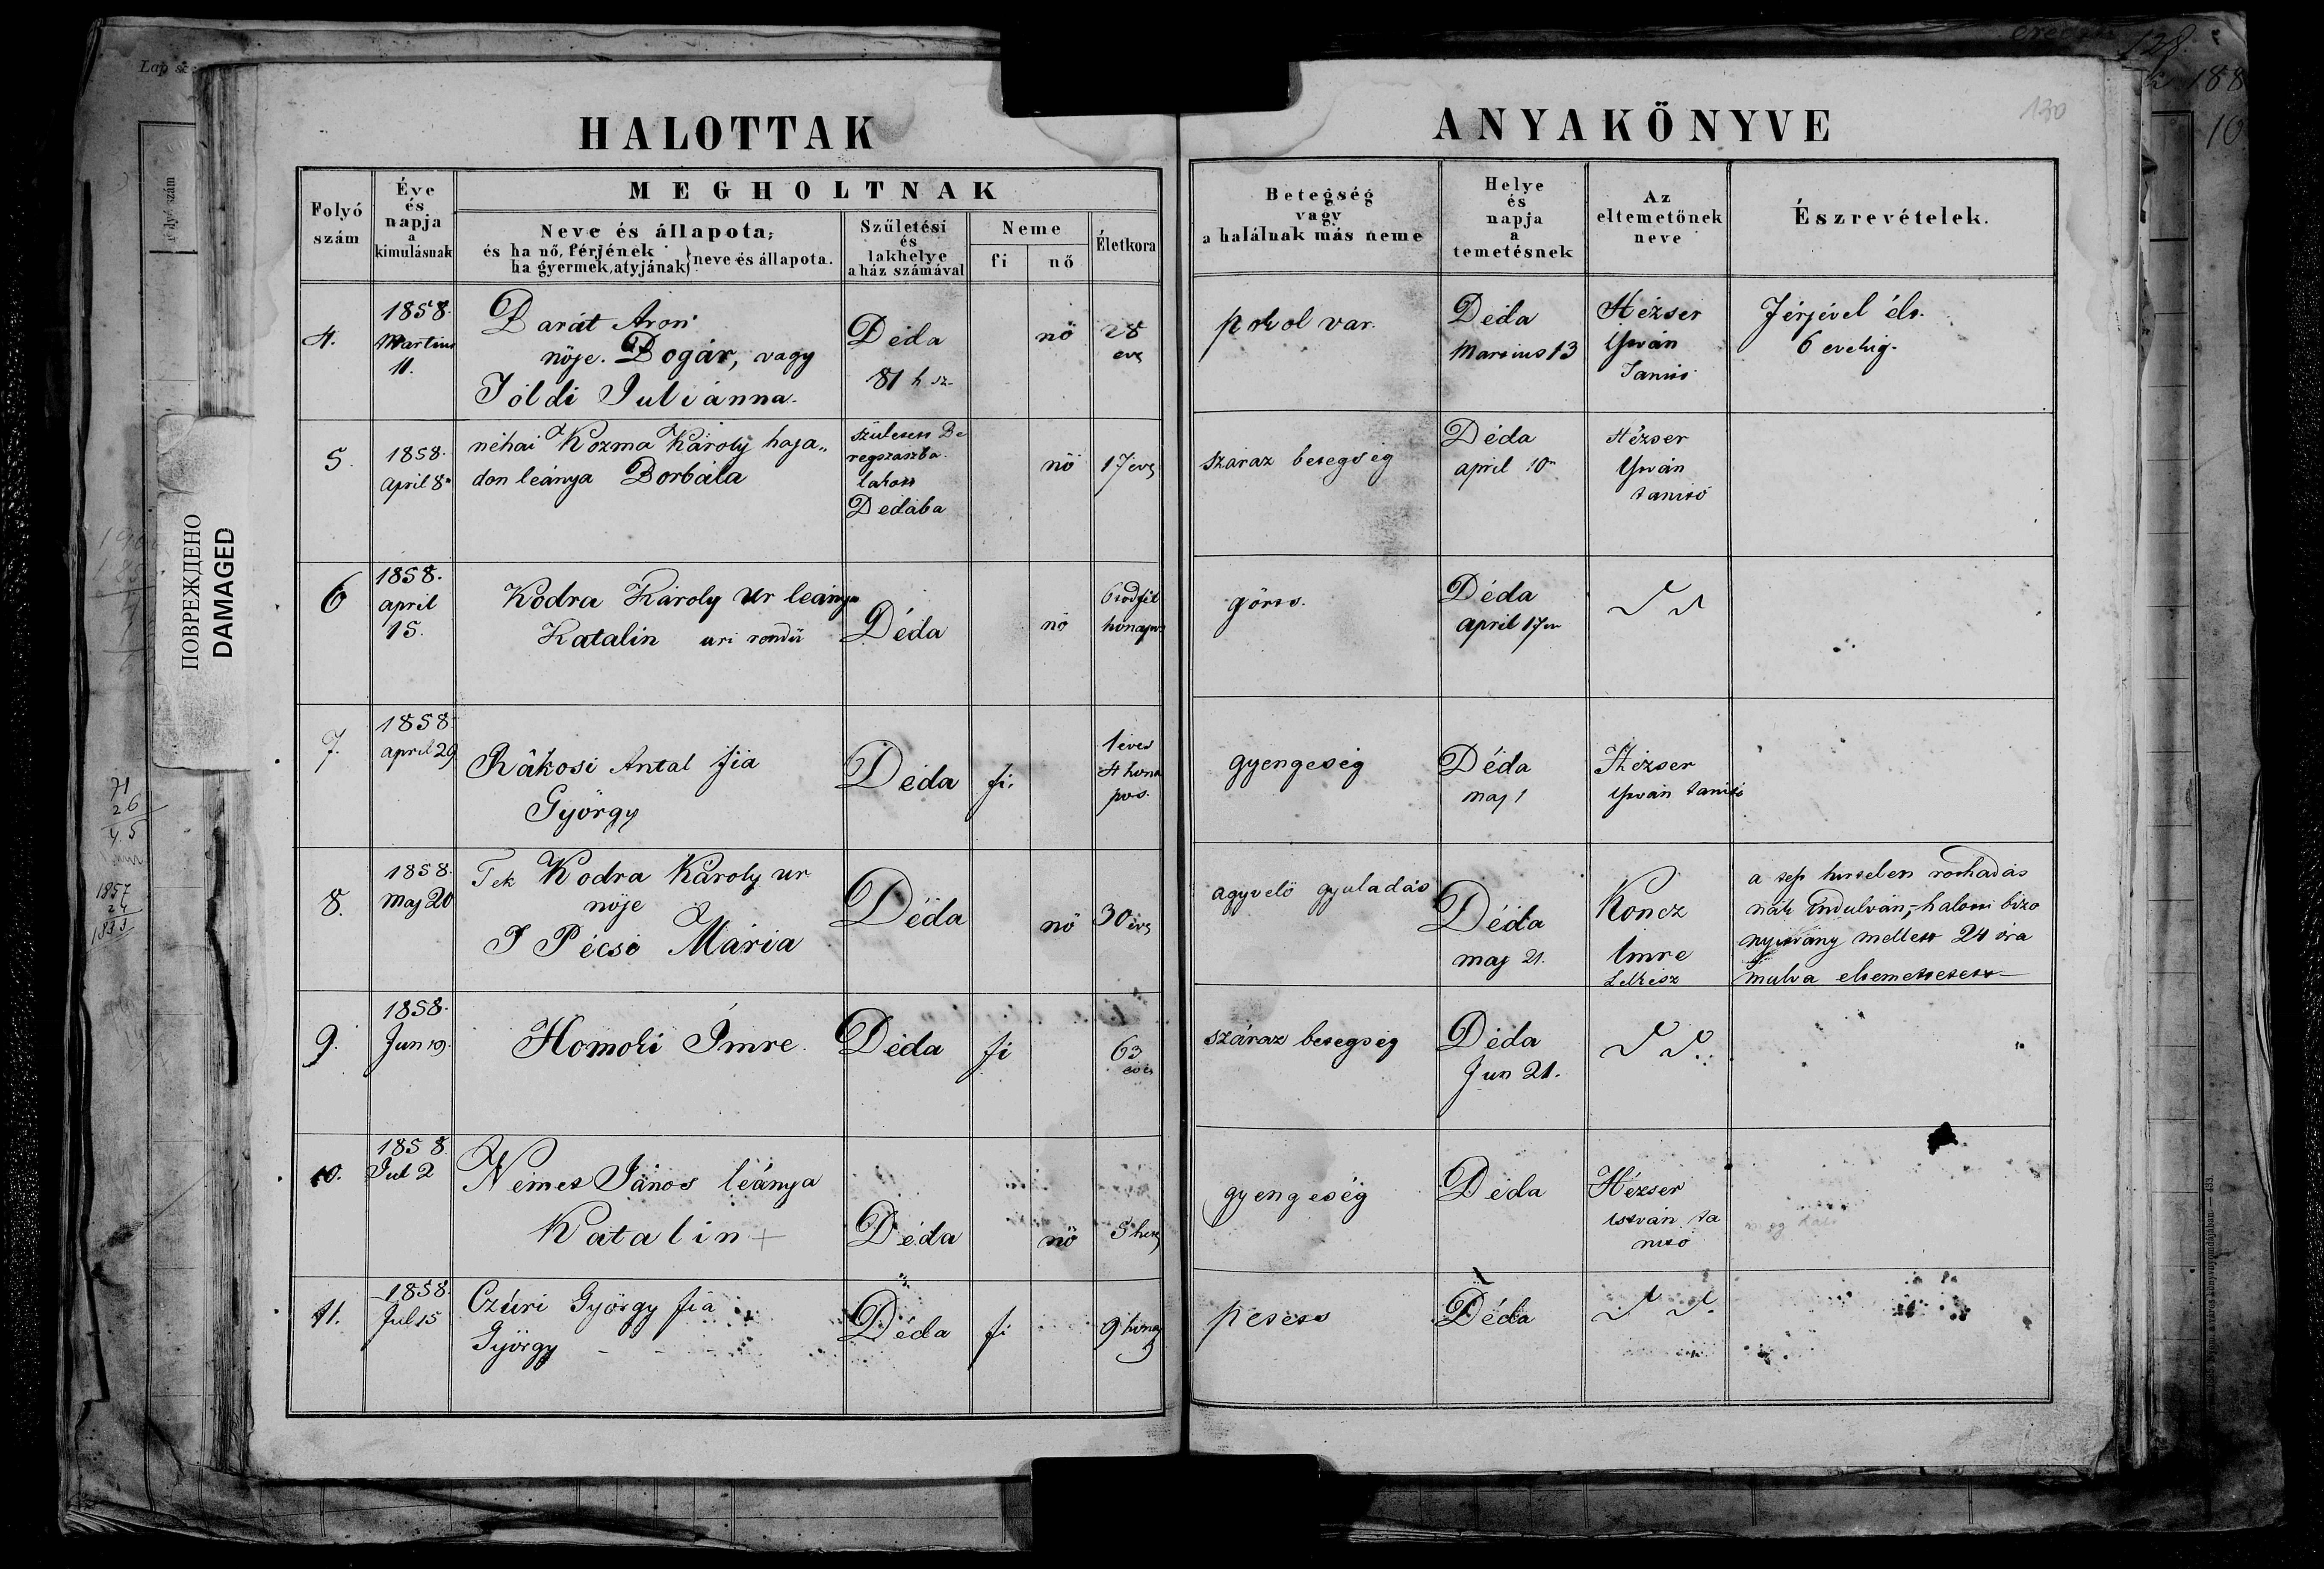 Lap sz
128.
188
10
130
HALOTTAK
ANYAKÖNYVE
Folyó szám
Éve és napja a kimulásnak
MEGHOLTNAK
Neve és állapota;
és ha nő, férjének
ha gyermek, atyjának } neve és állapota.
Születési és lakhelye a ház számával
Neme
fi
nő
Életkora
Betegség vagy a halálnak más neme
Helye és napja a temetésnek
Az eltemetőnek neve
Észrevételek.
4.
1858.
Martius
11.
Barát Áron
nöje. Bogár, vagy
Földi Juliánna.
Déda
81 h sz.
nö
28
eves
pokol var.
Déda
Martius 13
Hézser
István
Tanitó
Férjével élt.
6 evekig.
5.
1858.
April 8n
néhai Kozma Károly haja„
don leánya Borbála
születet Be
regszaszba
lakott
Dédába
nö
17 eves
szaraz betegség
Déda
april 10n
Hézser
István
tanitó
6
1858.
april
15.
Kodra Károly Ur leánya
Katalin uri rendü
Déda
nö
6odfél
honapos
görts.
Déda
april 17en
7.
1858.
april 29
Rákosi Antal fia
György
Déda
fi.
1 eves
4 hona
pos.
gyengeség
Déda
maj 1
Hézser
István tanitó
8.
1858.
maj 20
Tek Kodra Károly ur
nöje
T Pécsi Mária
Déda
nö
30 éves
agyvelö gyuladás
Déda
maj 21.
Koncz
Imre
Lelkész
a test hirtelen rothadás
nak indulván, halotti bizo
nyitvány mellett 24 óra
mulva eltemettetett
9.
1858.
Jun 19.
Homoki Imre.
Déda
fi
63
eves
száraz betegség
Déda
Jun 21.
10.
1858
Jul 2
Német János leánya
Katalin +
Déda
nö
5 hetes
gyengeség
Déda
Hézser
István ta
nitó
11.
1858.
Jul 15
Czúri György fia
György
Déda
fi
9 hona
petets
Déda
ПОВРЕЖДЕНО
DAMAGED
71
26
45
1857
24
1833